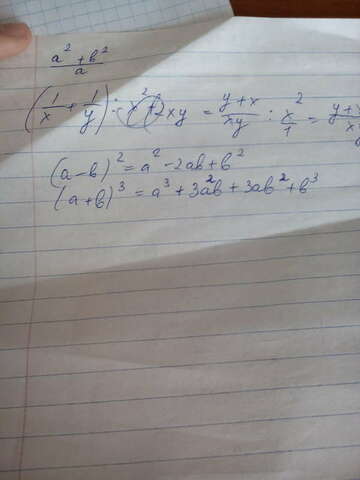 a² + b²
a
(1/x + 1/y) : x² + 2xy = y+x/xy : x²/1 = y+
(a-b)² = a² - 2ab + b²
(a+b)³ = a³ + 3a²b + 3ab² + b³